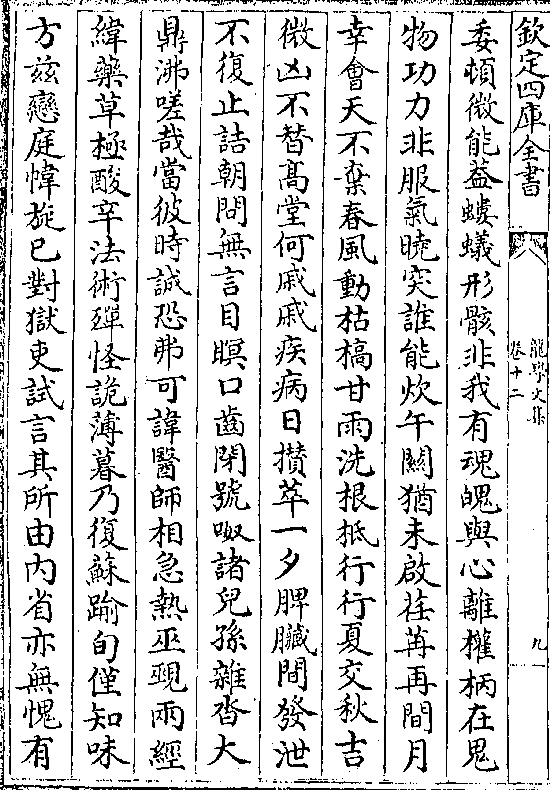 欽定四庫全書
龍學文集
卷十二
九
委頓微能葢螻蟻形骸非我有魂魄與心離權柄在鬼
物功力非服氣曉突誰能炊午關猶未啟荏苒再間月
幸會天不棄春風動枯槁甘雨洗根抵行行夏交秋吉
微凶不替髙堂何戚戚疾病日攢萃一夕脾臟間發泄
不復止詰朝問無言目瞑口齒閉號呶諸兒孫雜沓大
鼎沸嗟哉當彼時誠恐弗可諱醫師相急熱巫覡兩經
緯藥草極酸辛法術殫怪詭薄暮乃復蘇踰旬僅知味
方兹戀庭幃旋已對獄吏試言其所由内省亦無愧有